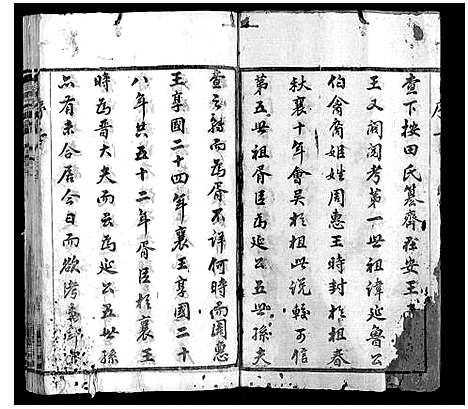 壹下按田氏篡齊在安王
王又閱閱考第一世祖諱延魯公
伯禽裔姬姓周惠王時封於祖春
秋襄十年會吳於柤此說較可信
第五世祖胥臣為延公五世孫夫
壹之轉而為胥不詳何時而周惠
王享國二十四年襄王享國二十
八年共五十二年胥臣於襄王
時為晉大夫而云為延公五世孫
品有未合居今日而欲考
序